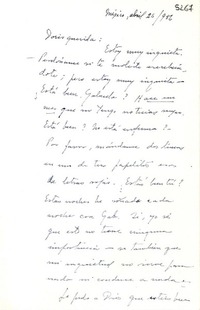 México, abril 24/952
Doris querida:
Estoy muy inquieta.
Perdóname si te molesto escribién-
dote; pero estoy muy inquieta.
¿Está bien Gabriela? Hace un
mes que no tengo noticias suyas.
¿Está bien? ¿No está enferma?
Por favor, mándame dos líneas
en uno de tus papelitos
de letras rojas. ¿Está bien tú?
Estas noches he soñado cada
noche con Gab. Sí, ya sé
que esto no tiene ninguna
importancia y sé también que
mi inquietud no sirve para
nada ni conduce a nada.
Le pido a Dios que estén bien